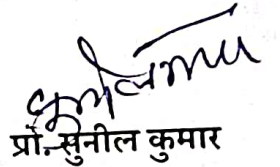 प्रो. सुनील कुमार